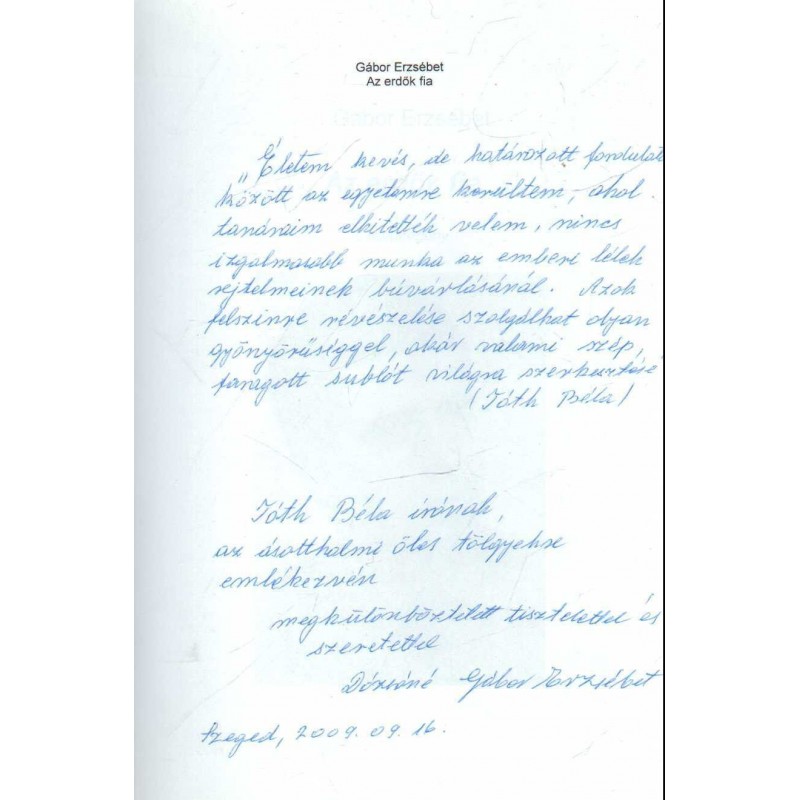 Gábor Erzsébet
Az erdők fia
„Életem kevés, de határozott fordulat
között az egyetemre kerültem, ahol
tanáraim elhitették velem, nincs
izgalmasabb munka az emberi lélek
rejtelmeinek búvárlásánál. Azok
felszínre révészelése szolgálhat olyan
gyönyörűséggel, akár valami szép,
faragott sublót világra szerkesztése
(Tóth Béla)
Tóth Béla írónak,
az ásotthalmi öles tölgyekre
emlékezvén
megkülönböztetett tisztelettel és
szeretettel
Dózsáné Gábor Erzsébet
Szeged, 2009.09.16.